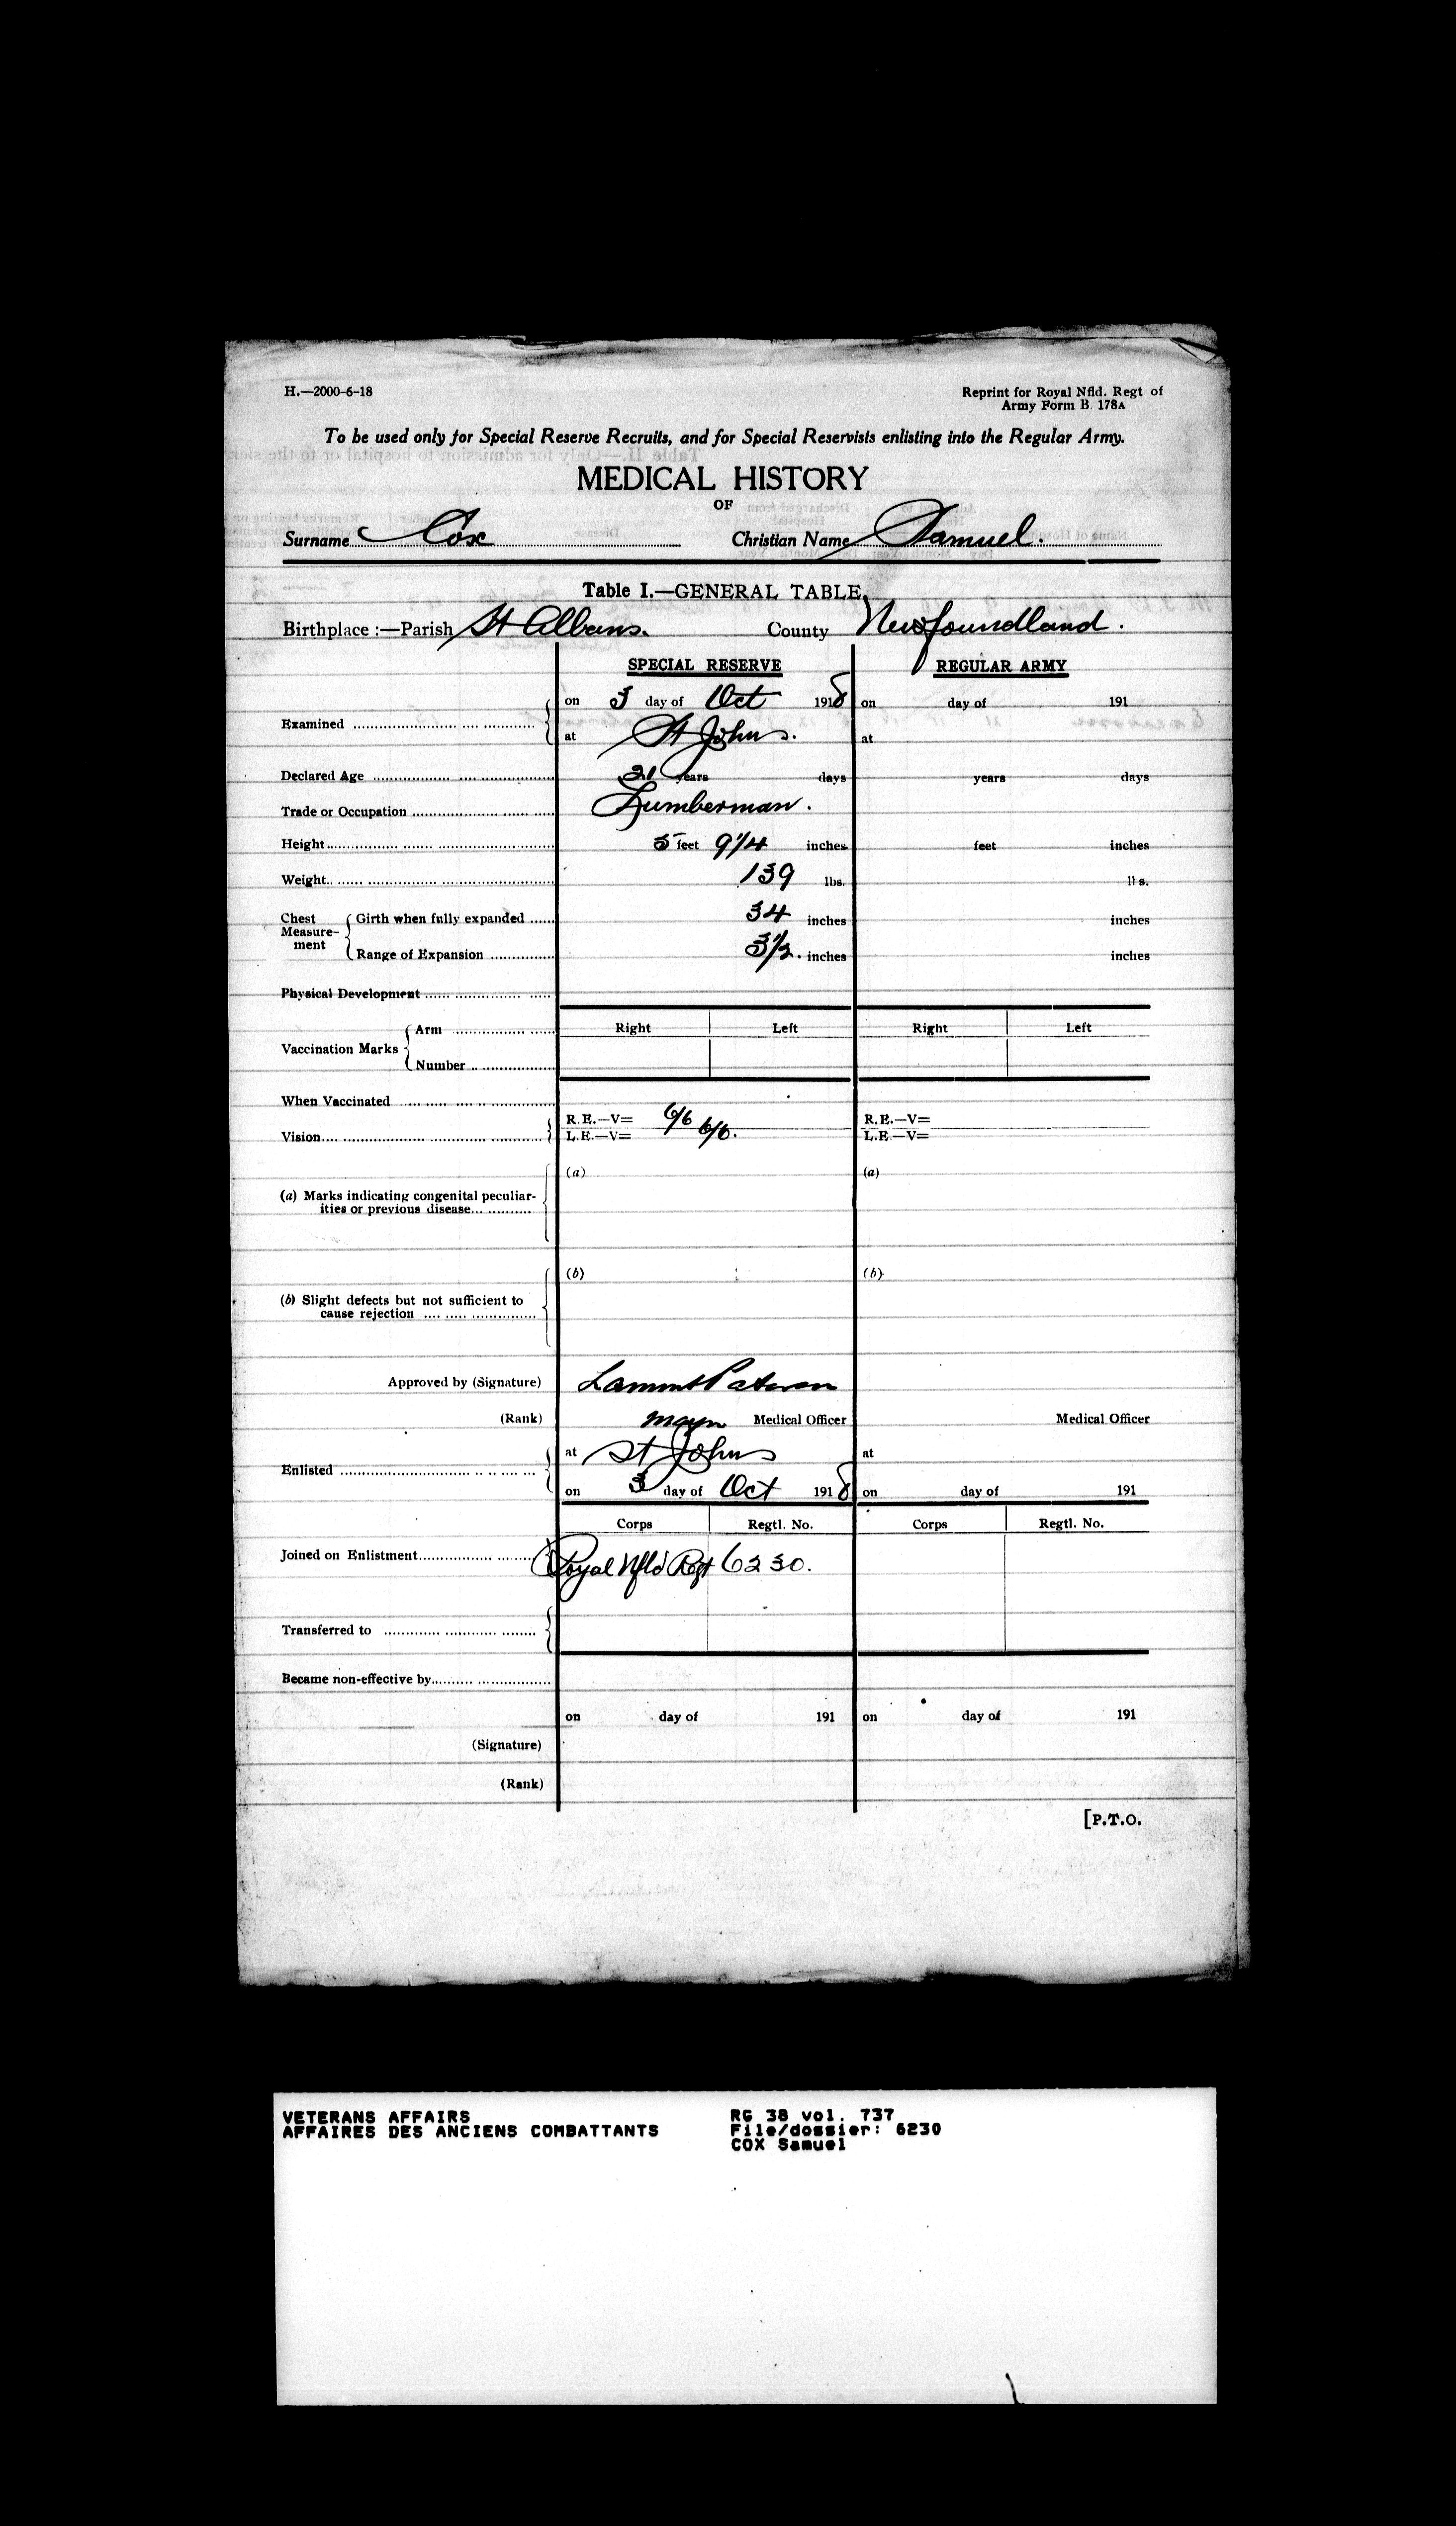 H.—2000-6-18
Reprint for Royal Nfld. Regt of
Army Form B 178A
To be used only for Special Reserve Recruits, and for Special Reservists enlisting into the Regular Army.
MEDICAL HISTORY
OF
Surname Cox Christian Name Samuel.
Table I.—GENERAL TABLE
Birthplace :—Parish St Albans. County Newfoundland.
SPECIAL RESERVE REGULAR ARMY
on 3 day of Oct 1918 on day of 191
Examined
at St Johns. at
Declared Age 21 years days years days
Trade or Occupation Lumberman.
Height 5 feet 9 1/4 inches feet inches
Weight 139 lbs. lbs.
Chest Measurement Girth when fully expanded 34 inches inches
Range of Expansion 3 1/2. inches inches
Physical Development
Arm Right Left Right Left
Vaccination Marks
Number
When Vaccinated
R.E.—V= 6/6 R.E.—V=
Vision L.E.—V= 6/6. L.E.—V=
(a) (a)
(a) Marks indicating congenital peculiar-
ities or previous disease
(b) (b)
(b) Slight defects but not sufficient to
cause rejection
Approved by (Signature) Lamont Paterson
(Rank) Major Medical Officer Medical Officer
at St Johns at
Enlisted
on 3 day of Oct 1918 on day of 191
Corps Regtl. No. Corps Regtl. No.
Joined on Enlistment Royal Nfld Regt 6230.
Transferred to
Became non-effective by
on day of 191 on day of 191
(Signature)
(Rank)
[P.T.O.
VETERANS AFFAIRS RG 38 vol. 737
AFFAIRES DES ANCIENS COMBATTANTS File/dossier: 6230
COX Samuel